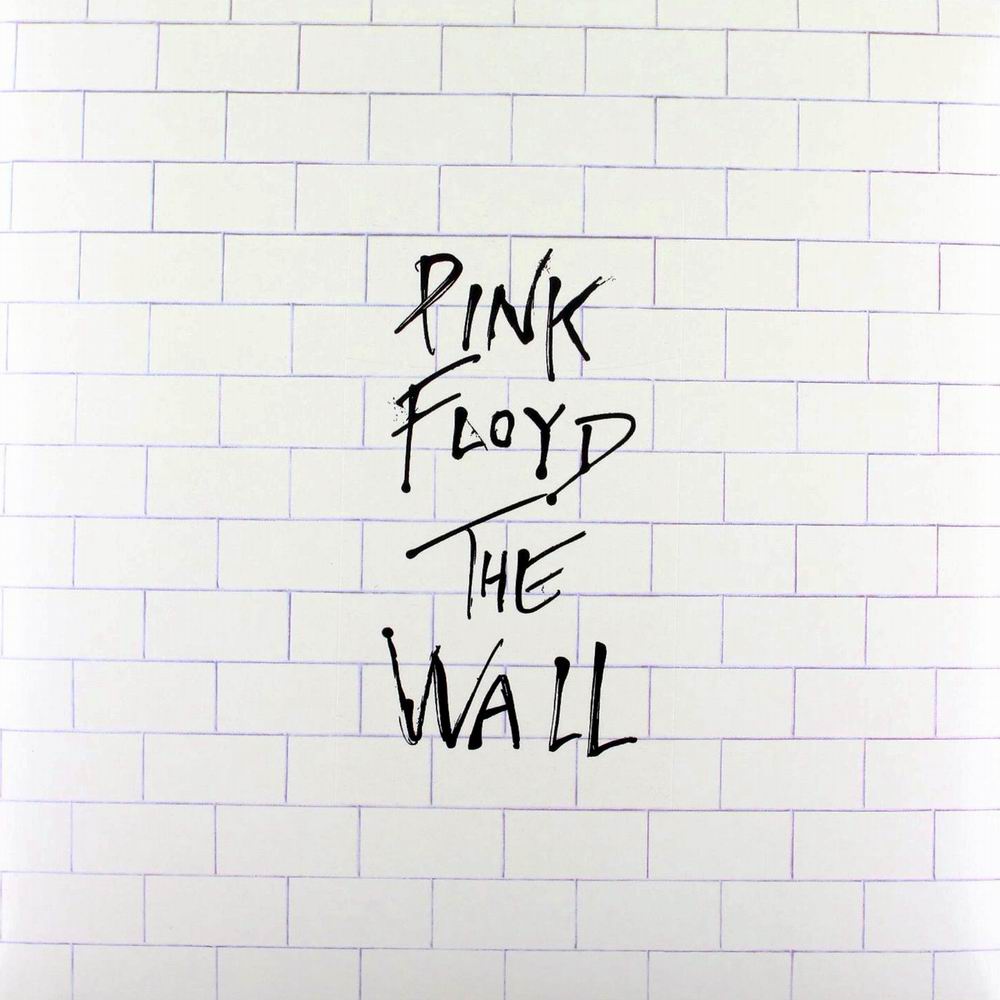 PINK
FLOYD
THE
WALL